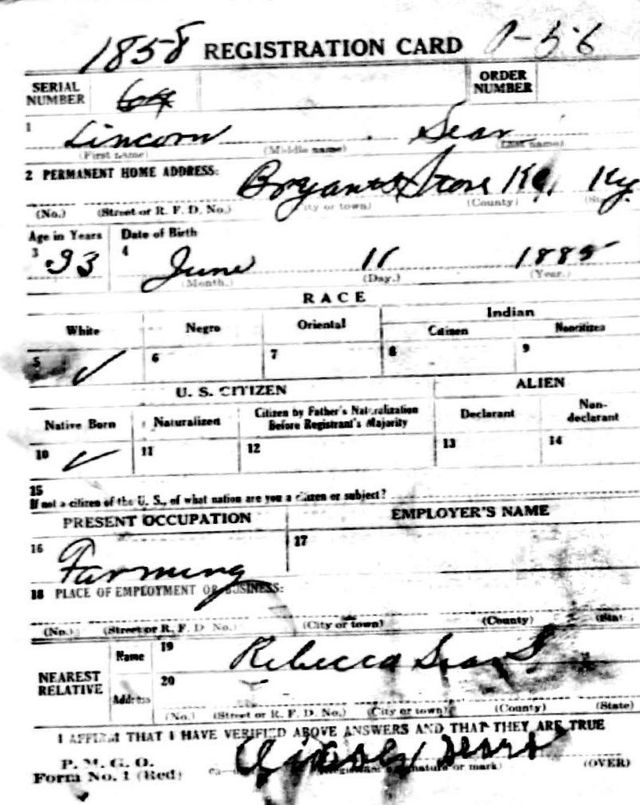 1858 REGISTRATION CARD
SERIAL NUMBER ORDER NUMBER
1 Lincorn Sear
(First name) (Middle name) (Last name)
2 PERMANENT HOME ADDRESS:
Bryants Store Ky.
(No.) (Street or R. F. D. No.) (City or town) (County)
Age in Years Date of Birth
3 33 4 June 11 1885
(Month.) (Day.) (Year.)
RACE
White Negro Oriental Indian
Citizen Noncitizen
5 ✓ 6 7 8 9
U. S. CITIZEN ALIEN
Native Born Naturalized Citizen by Father's Naturalization Before Registrant's Majority Declarant Non-declarant
10 ✓ 11 12 13 14
15
If not a citizen of the U. S., of what nation are you a citizen or subject?
PRESENT OCCUPATION EMPLOYER'S NAME
16 Farming 17
18 PLACE OF EMPLOYMENT OR BUSINESS:
(No.) (Street or R. F. D. No.) (City or town) (County) (State)
NEAREST RELATIVE Name 19 Rebecca Sears
Address 20
(No.) (Street or R. F. D. No.) (City or town) (County) (State)
I AFFIRM THAT I HAVE VERIFIED ABOVE ANSWERS AND THAT THEY ARE TRUE
P. M. G. O.
Form No. 1 (Red) Sears (Registrant's signature or mark) (OVER)